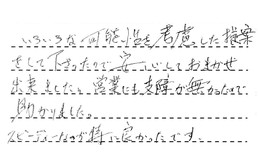 いろいろな可能性を考慮した提案
をして下さったので安心しておまかせ
出来ました。営業にも支障が無かったので
助かりました。
スピーディーなのが特に良かったです。